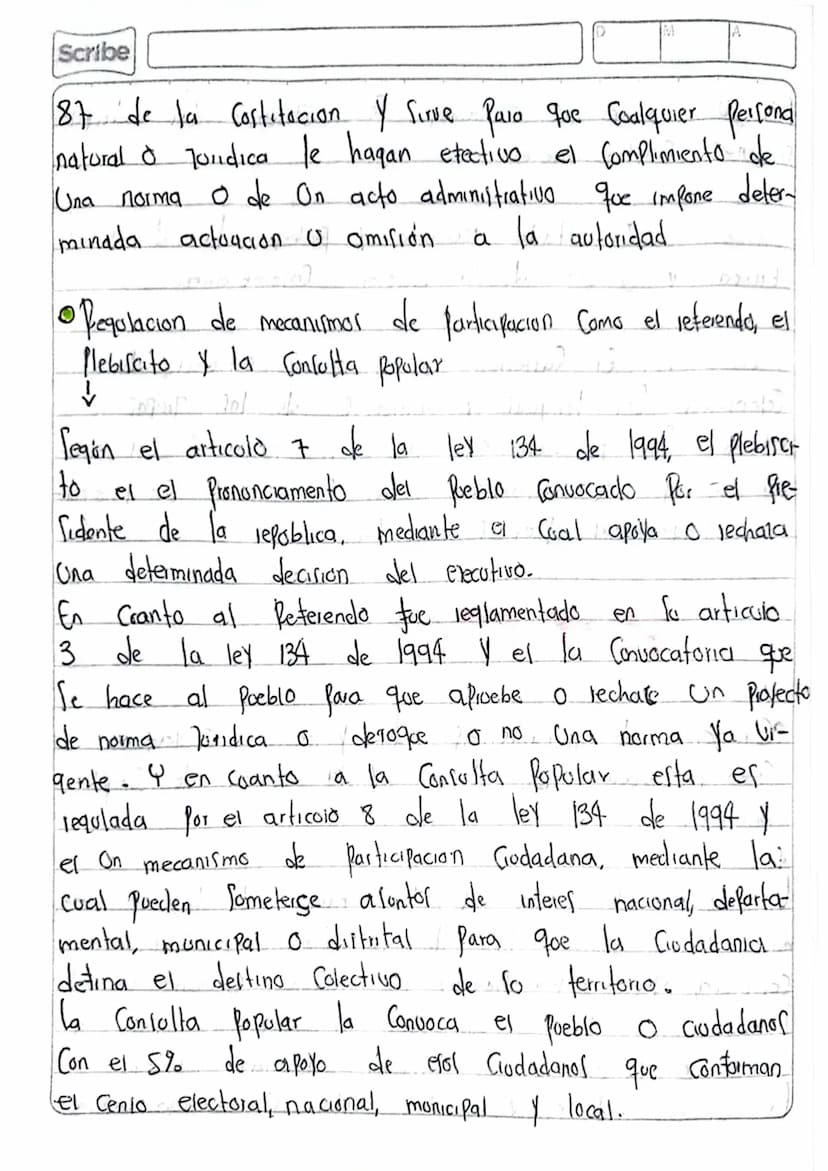 Scribe
D M A
87 de la Costitucion y sirve para que Cualquier persona
natural o Juridica le hagan efectivo el Complimiento de
Una norma o de Un acto administrativo que impone deter-
minada actuación u omisión a la autoridad
Regulacion de mecanismos de participacion Como el referendo, el
plebiscito y la Consulta popular
↓
Según el articulo 7 de la ley 134 de 1994, el plebisci-
to es el Pronunciamento del pueblo Convocado Por el Pre-
sidente de la republica, mediante el Cual apoya o rechaza
Una determinada decision del ejecutivo.
En Cuanto al Referendo fue reglamentado en su articulo
3 de la ley 134 de 1994 y es la Convocatoria que
Se hace al pueblo para que apruebe o rechate un proyecto
de norma Juridica o derogue o no Una norma ya vi-
gente. Y en cuanto a la Consulta Popular esta es
regulada por el articulo 8 de la ley 134 de 1994 y
es Un mecanismo de Participacion Ciudadana, mediante la
cual pueden Someterse asuntos de interes nacional, departa-
mental, municipal o distrital para que la Ciudadania
defina el destino Colectivo de su territorio.
La Consulta Popular la Convoca el pueblo o ciudadanos
Con el 5% de apoyo de esos Ciudadanos que conforman
el Censo electoral, nacional, municipal y local.